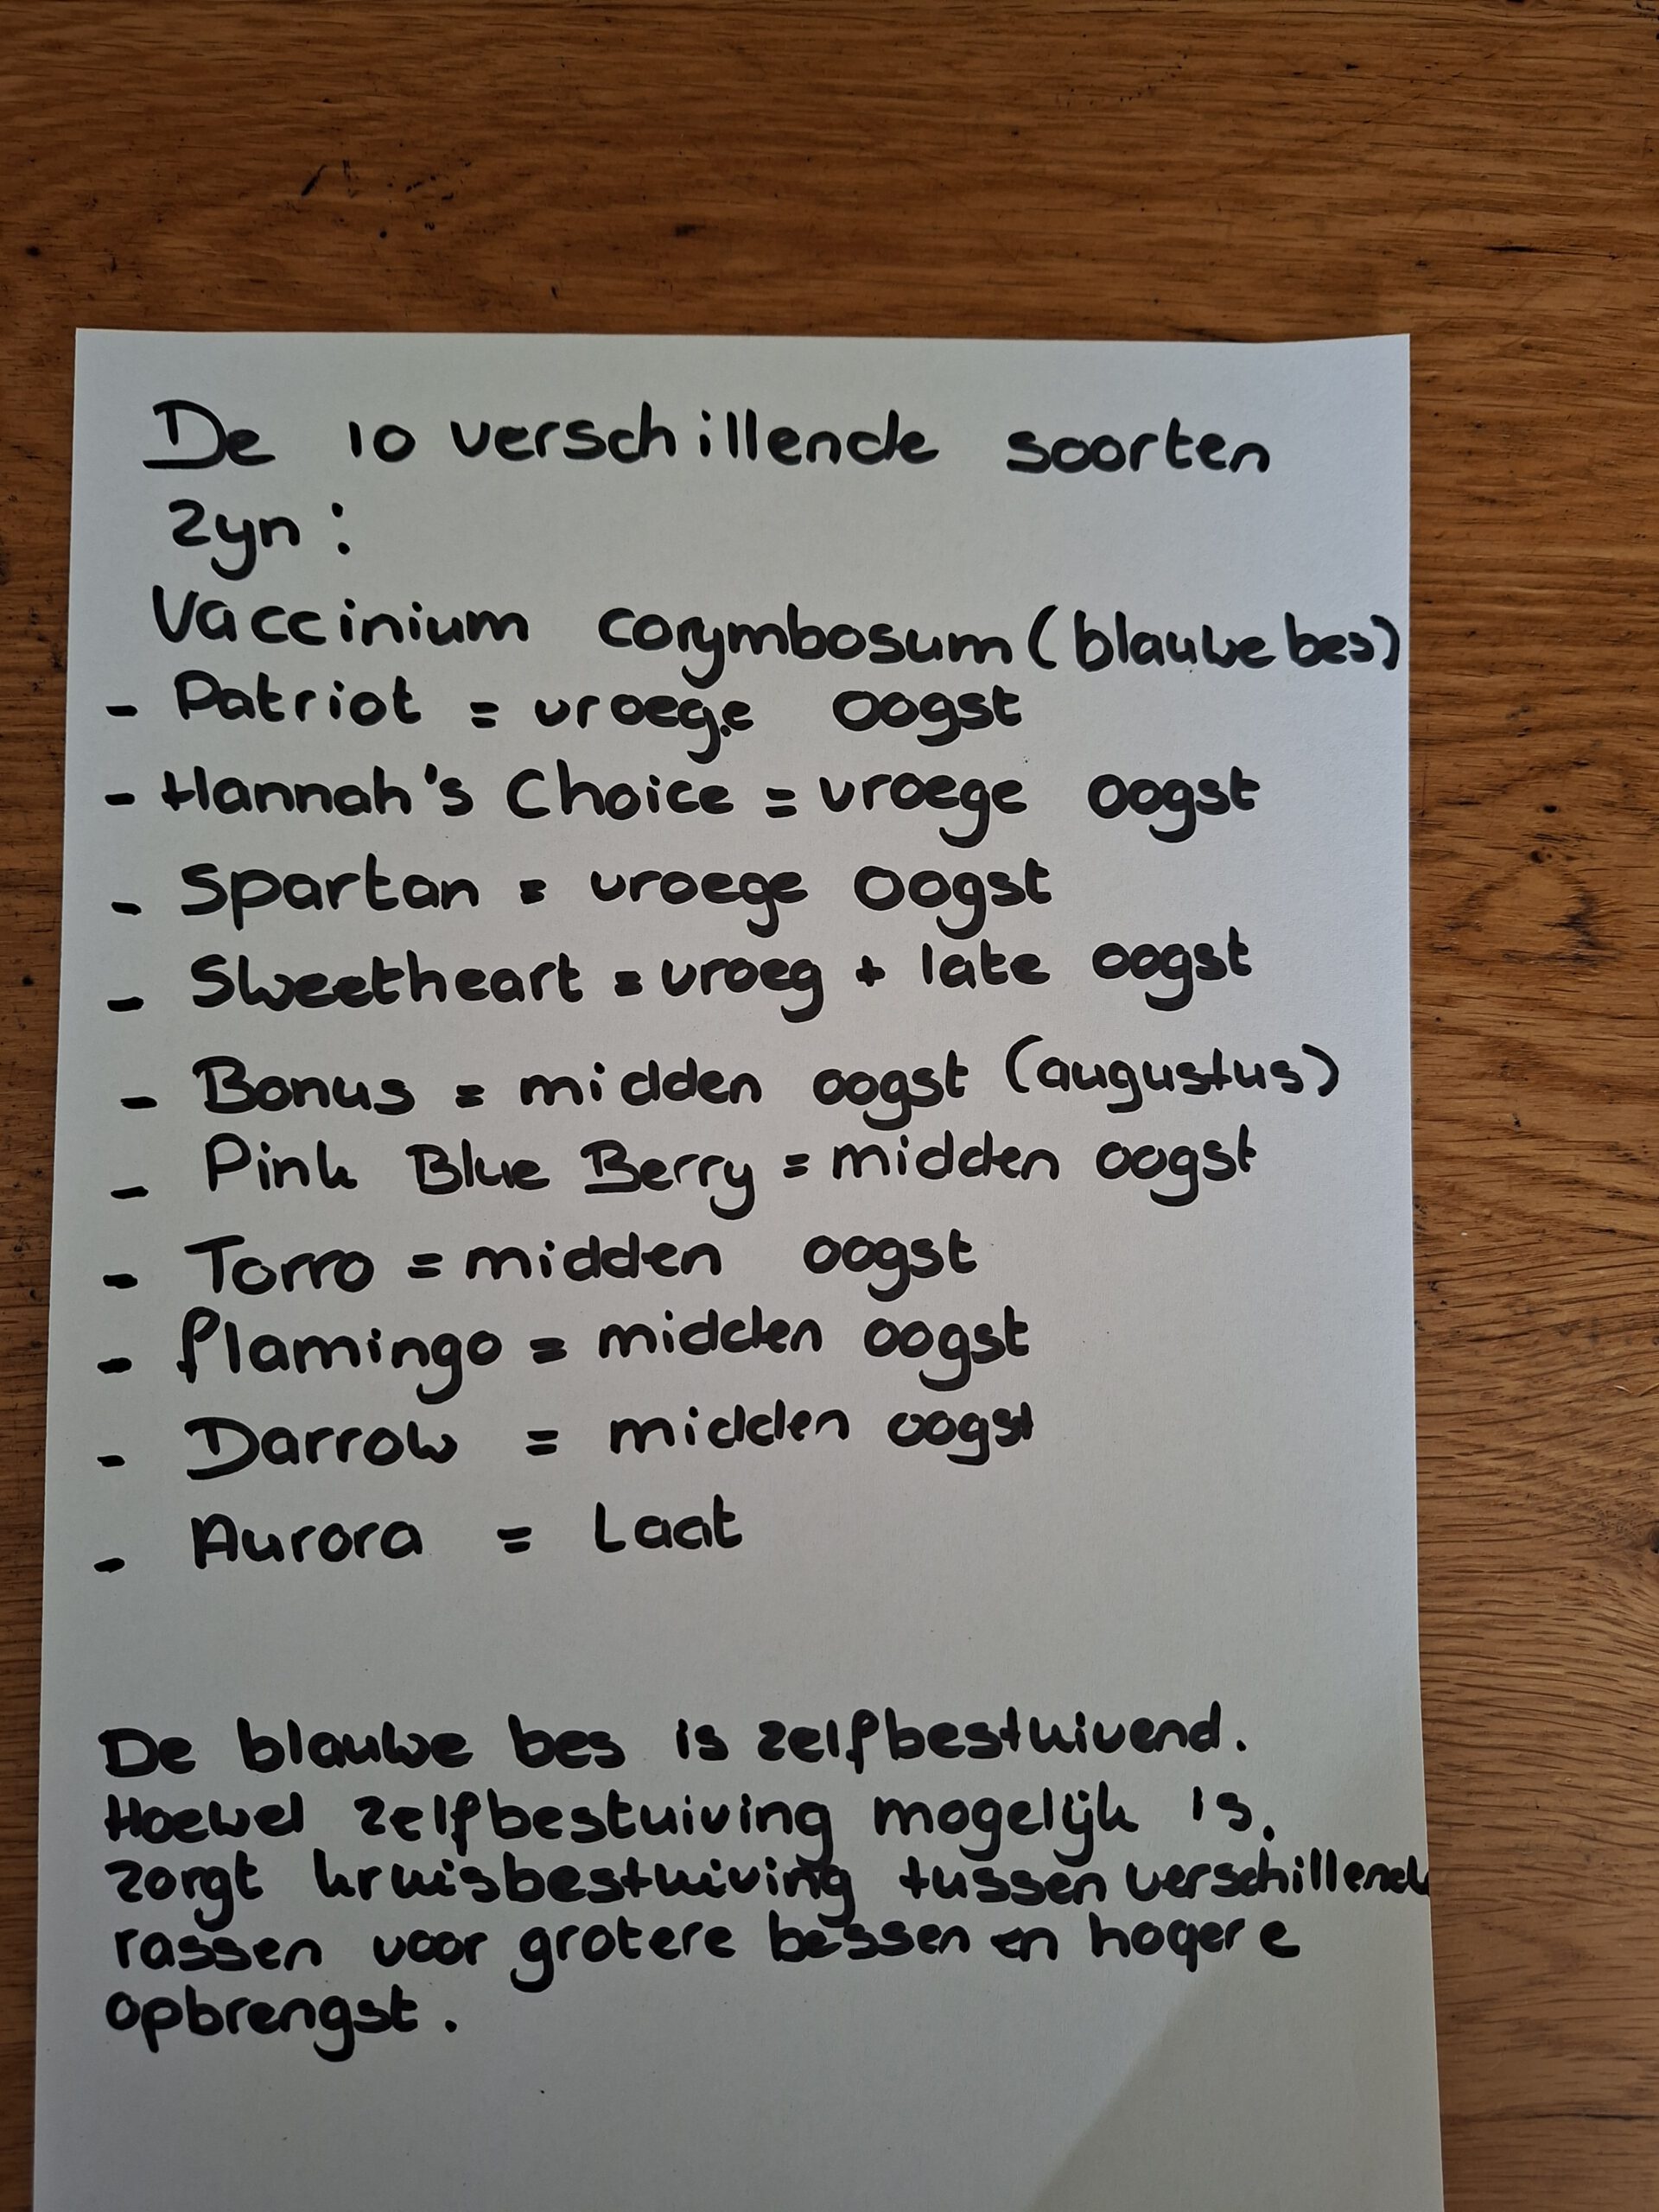 De 10 verschillende soorten
zyn :
Vaccinium corymbosum (blauwe bes)
- Patriot = vroege oogst
- Hannah's Choice = vroege oogst
- Spartan = vroege oogst
- Sweetheart = vroeg + late oogst
- Bonus = midden oogst (augustus)
- Pink Blue Berry = midden oogst
- Torro = midden oogst
- flamingo = midden oogst
- Darrow = midden oogst
- Aurora = Laat
De blauwe bes is zelfbestuivend.
Hoewel zelfbestuiving mogelijk is,
zorgt kruisbestuiving tussen verschillende
rassen voor grotere bessen en hogere
opbrengst.